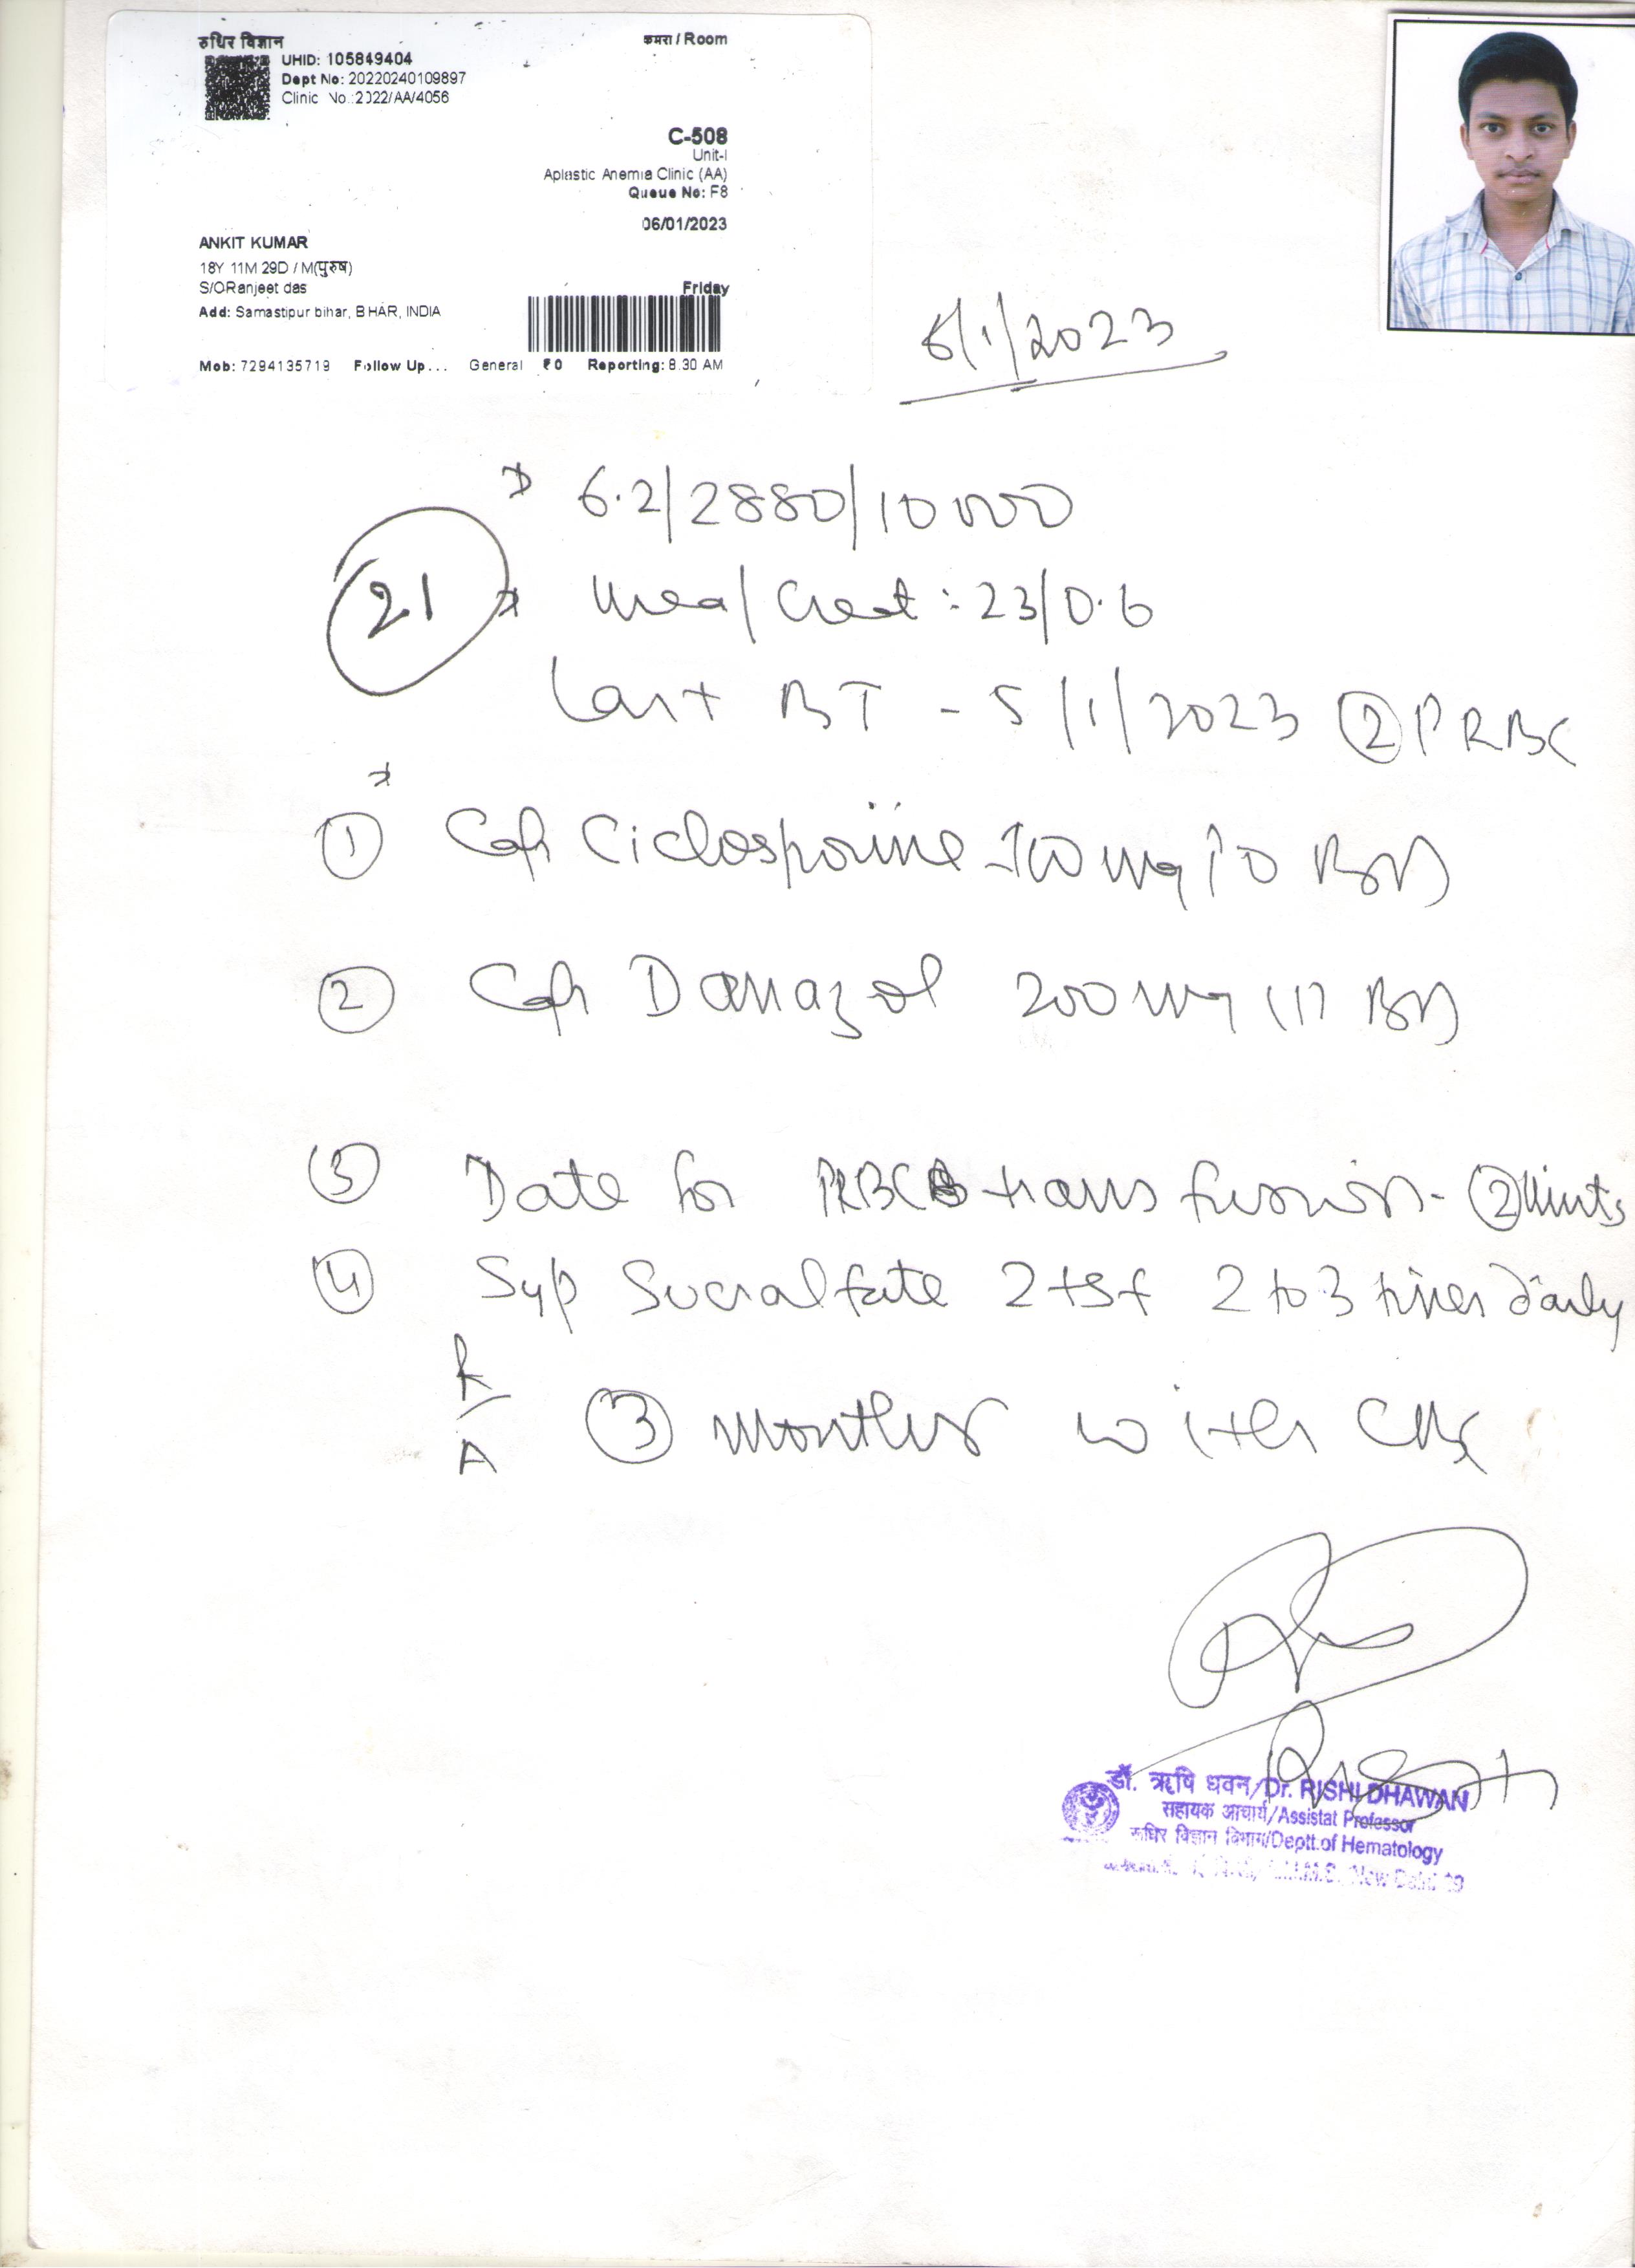 रुधिर विज्ञान
कमरा / Room
UHID: 105849404
Dept No: 20220240109897
Clinic No.:2022/AA/4056
C-508
Unit-I
Aplastic Anemia Clinic (AA)
Queue No: F8
06/01/2023
ANKIT KUMAR
18Y 11M 29D / M(पुरुष)
S/O Ranjeet das
Friday
Add: Samastipur bihar, BIHAR, INDIA
Mob: 7294135719 Follow Up... General ₹0 Reporting: 8.30 AM
6/1/2023
6.2/2880/10000
21
Urea/Creat :- 23/0.6
Last BT - 5/1/2023 2 PRBC
1 Cap Ciclosporine 100 mg PO BD
2 Cap Danazol 200 mg BD
3 Date for PRBC transfusion - 2 Units
4 Syp Sucralfate 2 tsf 2 to 3 times daily
R/A 3 months with CBC
डॉ. ऋषि धवन/Dr. RISHI DHAWAN
सहायक आचार्य/Assistat Professor
रूधिर विज्ञान विभाग/Deptt.of Hematology
New Delhi